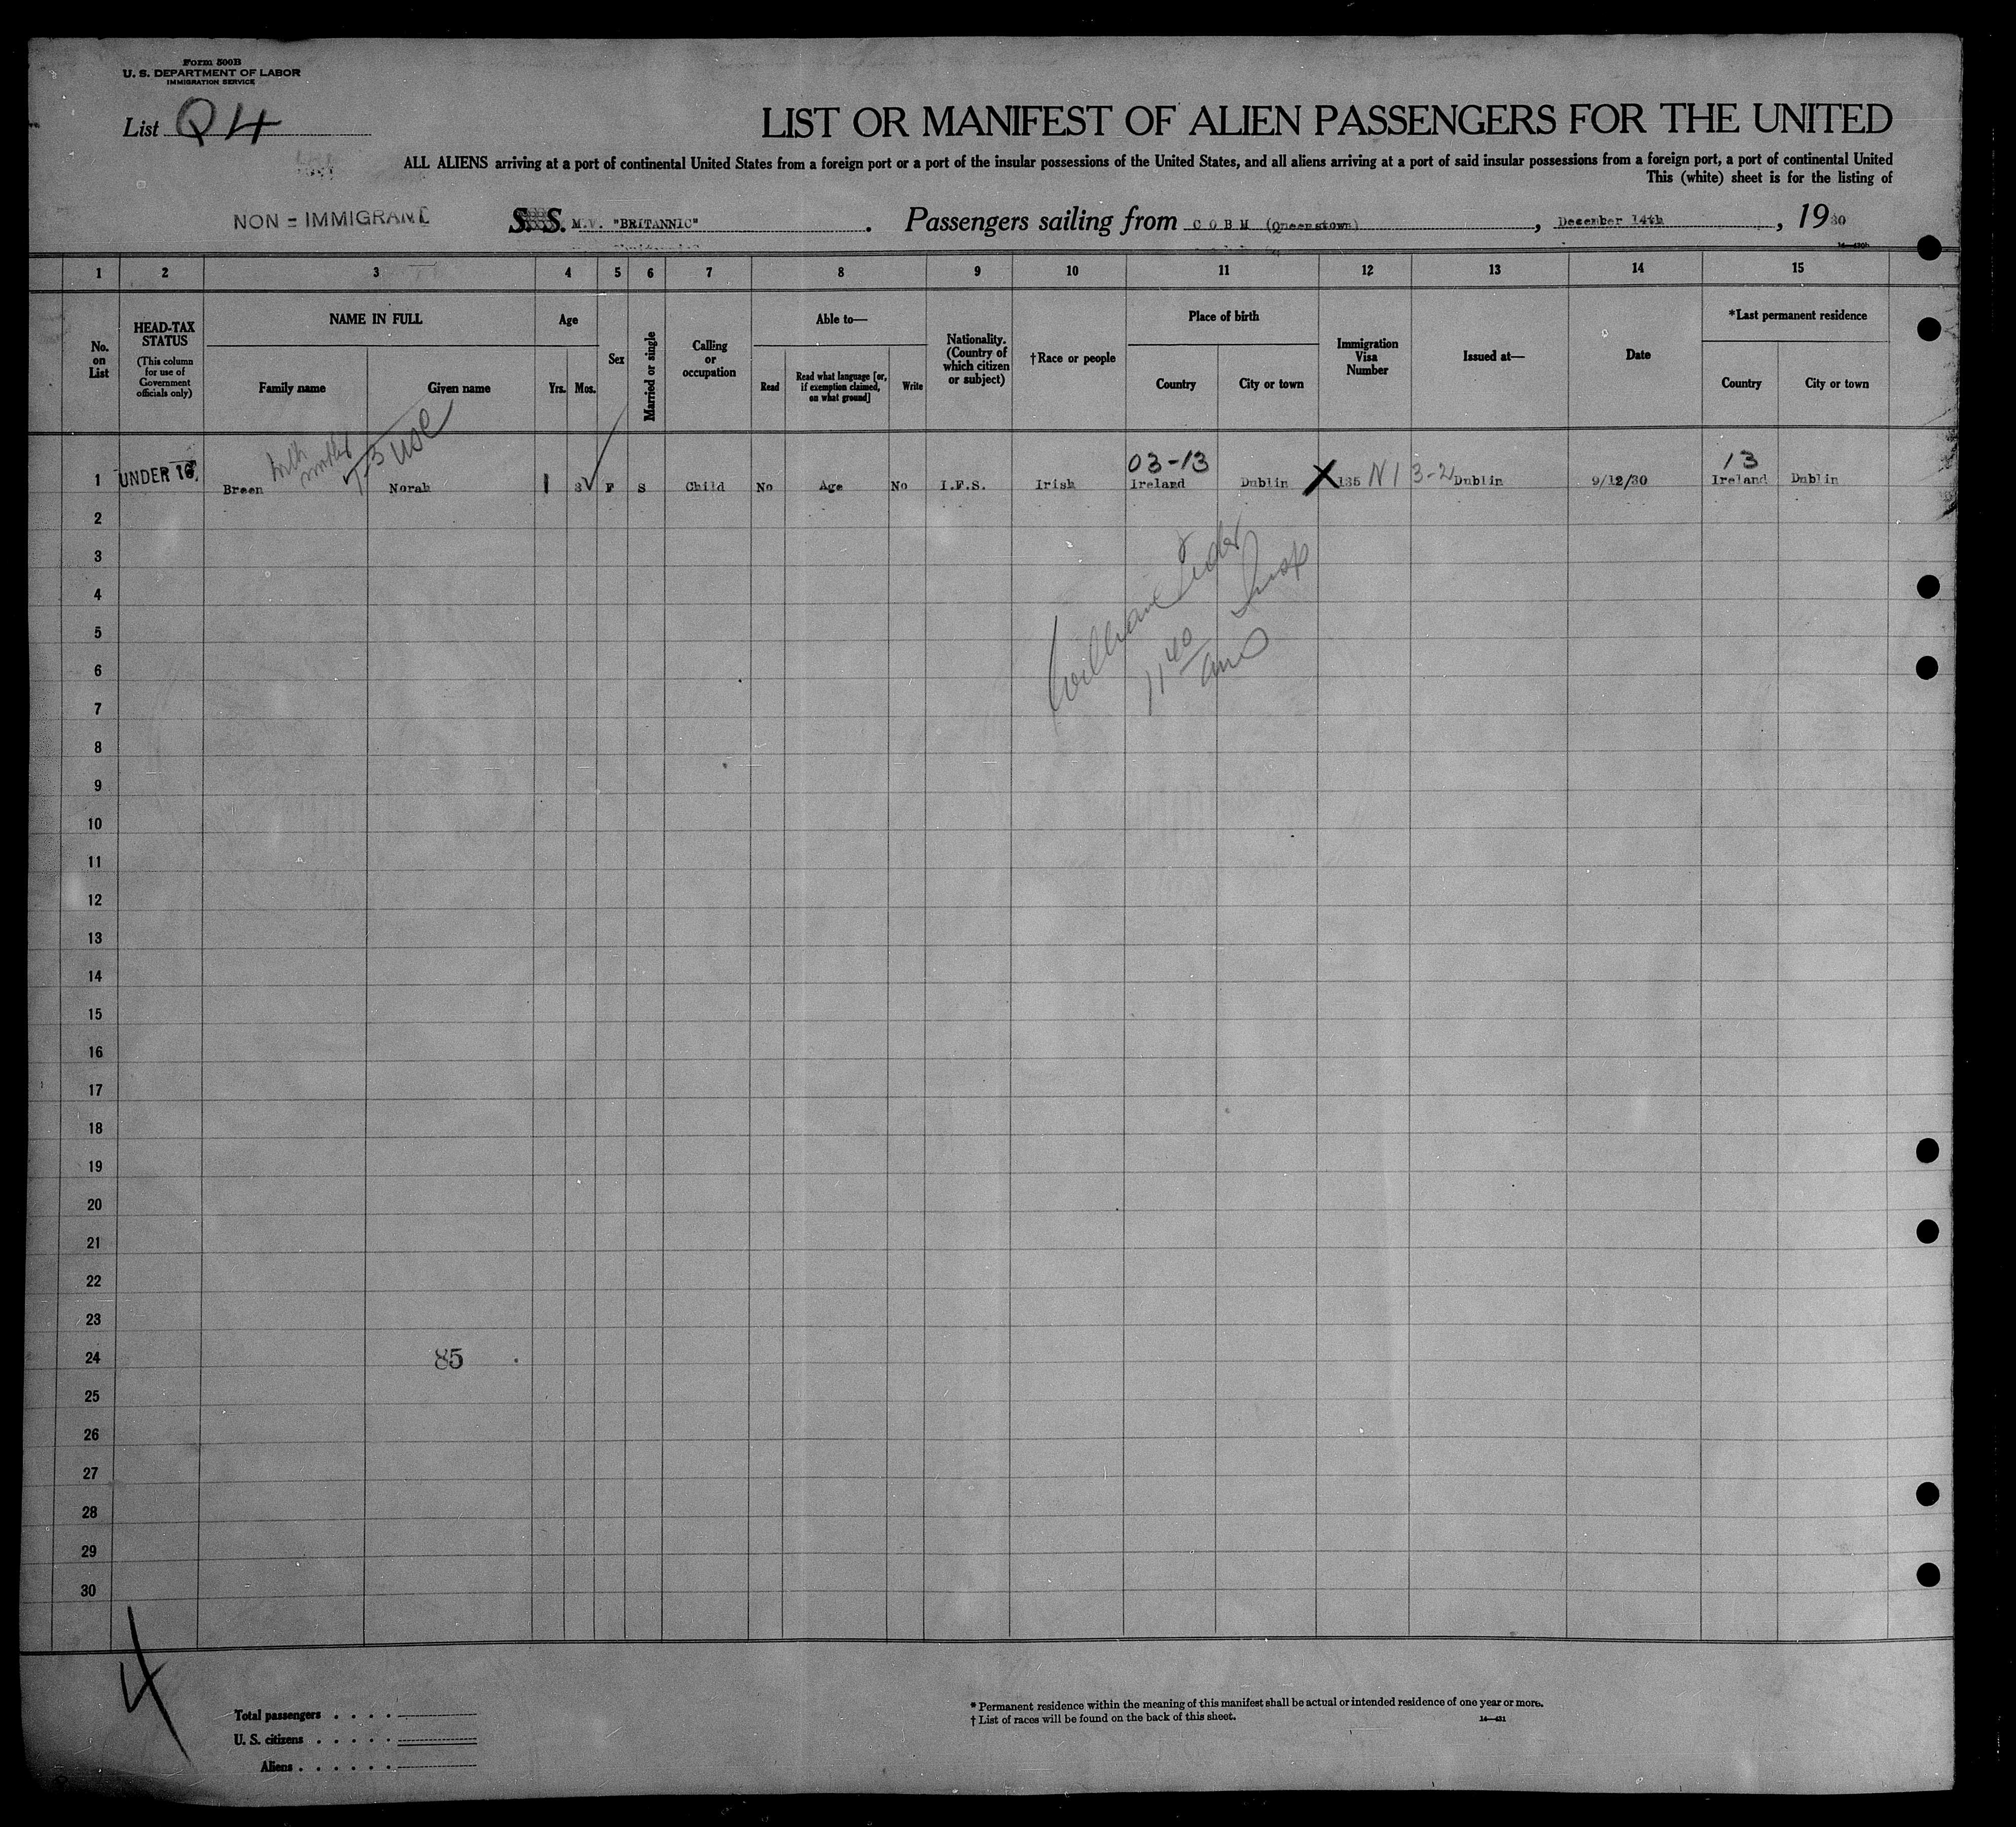 Form 500B
U. S. DEPARTMENT OF LABOR
IMMIGRATION SERVICE
List Q4
LIST OR MANIFEST OF ALIEN PASSENGERS FOR THE UNITED
ALL ALIENS arriving at a port of continental United States from a foreign port or a port of the insular possessions of the United States, and all aliens arriving at a port of said insular possessions from a foreign port, a port of continental United
This (white) sheet is for the listing of
NON = IMMIGRANT
S. S. M.V. "BRITANNIC". Passengers sailing from COBH (Queenstown), December 14th, 1930
1 2 3 4 5 6 7 8 9 10 11 12 13 14 15
No. on List
HEAD-TAX STATUS (This column for use of Government officials only)
NAME IN FULL
Family name
Given name
Age
Yrs. Mos.
Sex
Married or single
Calling or occupation
Able to—
Read
Read what language [or, if exemption claimed, on what ground]
Write
Nationality. (Country of which citizen or subject)
†Race or people
Place of birth
Country
City or town
Immigration Visa Number
Issued at—
Date
*Last permanent residence
Country
City or town
with mother
03-13
13
1 UNDER 16. Breen Norah 1 F S Child No Age No I.F.S. Irish Ireland Dublin X 135 N I 3-2 Dublin 9/12/30 Ireland Dublin
2
3
William
Insp
4
5
11 40
am
6
7
8
9
10
11
12
13
14
15
16
17
18
19
20
21
22
23
24 85
25
26
27
28
29
30
4
Total passengers . . . .
U. S. citizens . . . . .
Aliens . . . . . .
* Permanent residence within the meaning of this manifest shall be actual or intended residence of one year or more.
† List of races will be found on the back of this sheet.